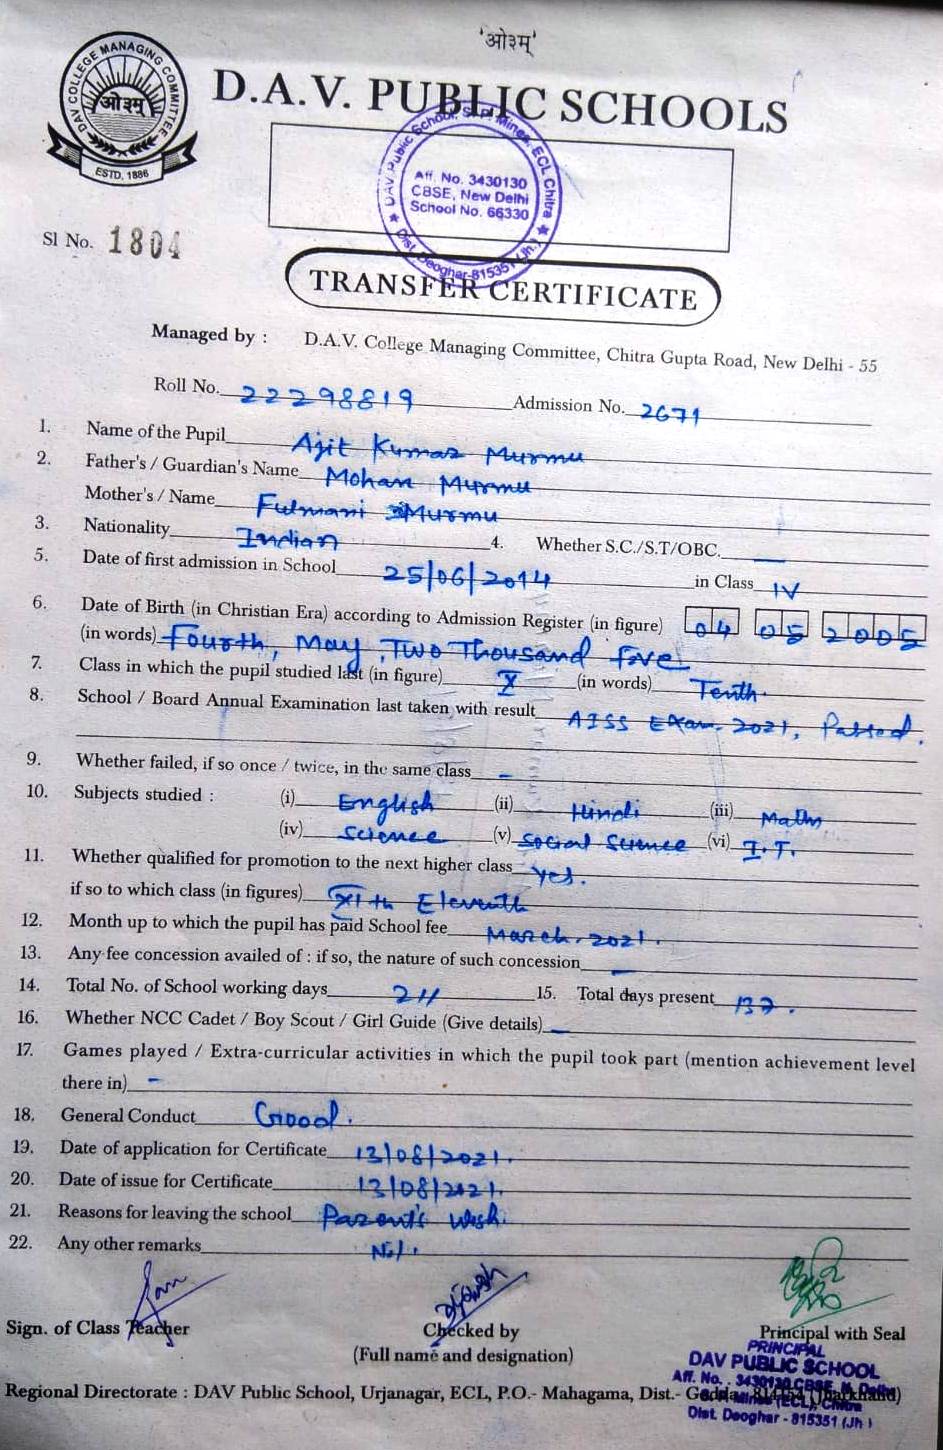 'ओ३म्'
DAV COLLEGE MANAGING COMMITTEE
ओ३म्
ESTD, 1886
D.A.V. PUBLIC SCHOOLS
DAV Public School, S.P. Mines, ECL Chitra
Aff. No. 3430130
CBSE, New Delhi
School No. 66330
Dist. Deoghar-815351 (Jh.)
Sl No. 1804
TRANSFER CERTIFICATE
Managed by : D.A.V. College Managing Committee, Chitra Gupta Road, New Delhi - 55
Roll No. 22298819 Admission No. 2671
1. Name of the Pupil Ajit Kumar Murmu
2. Father's / Guardian's Name Mohan Murmu
Mother's / Name Fulmani Murmu
3. Nationality Indian 4. Whether S.C./S.T/OBC. —
5. Date of first admission in School 25/06/2014 in Class IV
6. Date of Birth (in Christian Era) according to Admission Register (in figure) 04 05 2005
(in words) Fourth, May, Two Thousand five
7. Class in which the pupil studied last (in figure) X (in words) Tenth.
8. School / Board Annual Examination last taken with result AISS Exam. 2021, Passed.
9. Whether failed, if so once / twice, in the same class —
10. Subjects studied : (i) English (ii) Hindi (iii) Maths
(iv) Science (v) Social Science (vi) I.T.
11. Whether qualified for promotion to the next higher class yes.
if so to which class (in figures) XIth Eleventh
12. Month up to which the pupil has paid School fee March, 2021.
13. Any fee concession availed of : if so, the nature of such concession —
14. Total No. of School working days 211 15. Total days present 137.
16. Whether NCC Cadet / Boy Scout / Girl Guide (Give details) —
17. Games played / Extra-curricular activities in which the pupil took part (mention achievement level
there in) —
18. General Conduct Good.
19. Date of application for Certificate 13/08/2021.
20. Date of issue for Certificate 13/08/2021.
21. Reasons for leaving the school Parent's Wish.
22. Any other remarks Nil.
Sign. of Class Teacher Checked by Principal with Seal
(Full name and designation)
PRINCIPAL
DAV PUBLIC SCHOOL
Aff. No. 3430130 CBSE, N. Delhi
Regional Directorate : DAV Public School, Urjanagar, ECL, P.O.- Mahagama, Dist.- Godda- 814154 (Jharkhand)
S.P. Mines (ECL), Chitra
Dist. Deoghar - 815351 (Jh )